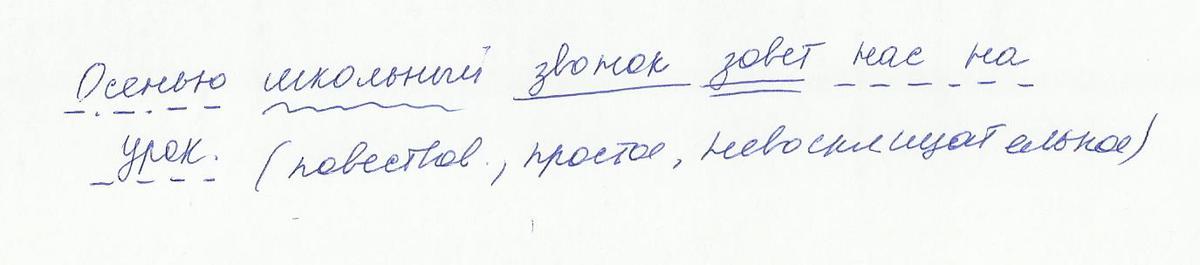 Осенью школьный звонок зовет нас на
урок. (повествов., простое, невосклицательное)